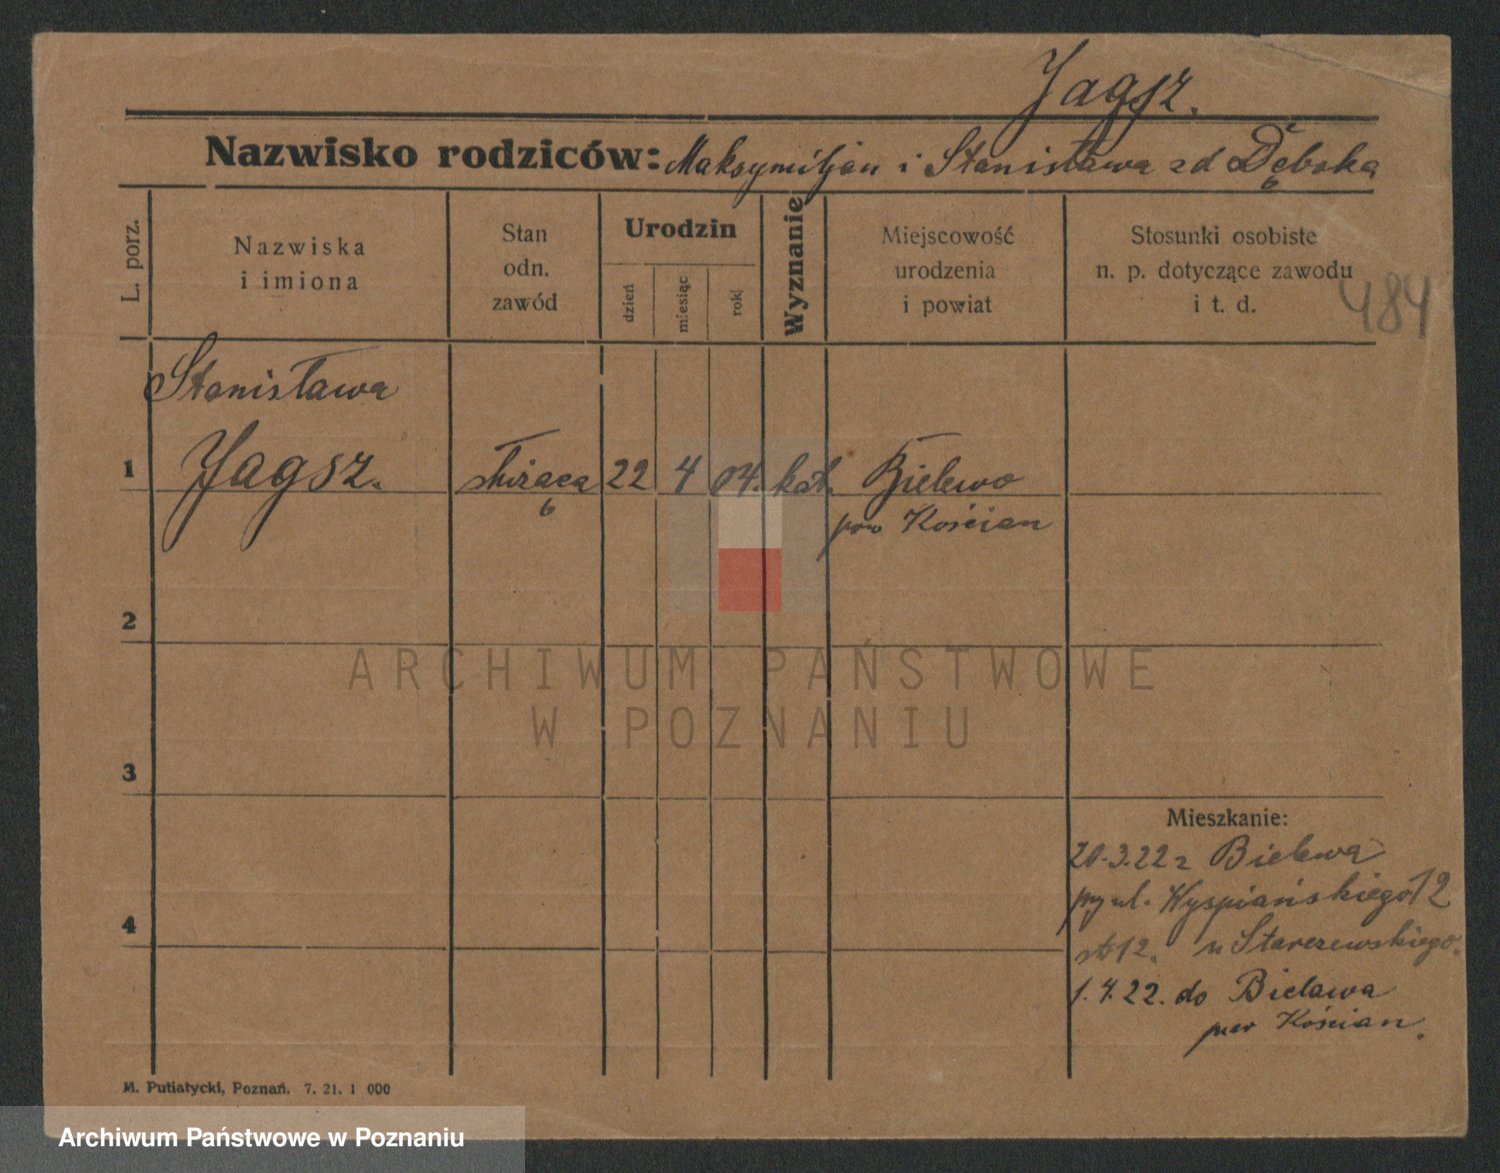 Jagsz.
Nazwisko rodziców: Maksymiljan i Stanisława zd Dębska
L. porz.
Nazwiska
i imiona
Stan
odn.
zawód
Urodzin
dzień
miesiąc
rok
Wyznanie
Miejscowość
urodzenia
i powiat
Stosunki osobiste
n. p. dotyczące zawodu
i t. d.
484
Stanisława
1 Jagsz. służąca 22 4 04. kat. Bielewo
pow Kościan
2
3
Mieszkanie:
20.3.22 z Bielewa
przy ul. Wyspiańskiego 12
4
12. u Starczewskiego.
1.4.22. do Bielawa
pow Kościan.
M. Putiatycki, Poznań. 7. 21. 1 000
ARCHIWUM PAŃSTWOWE
W POZNANIU
Archiwum Państwowe w Poznaniu